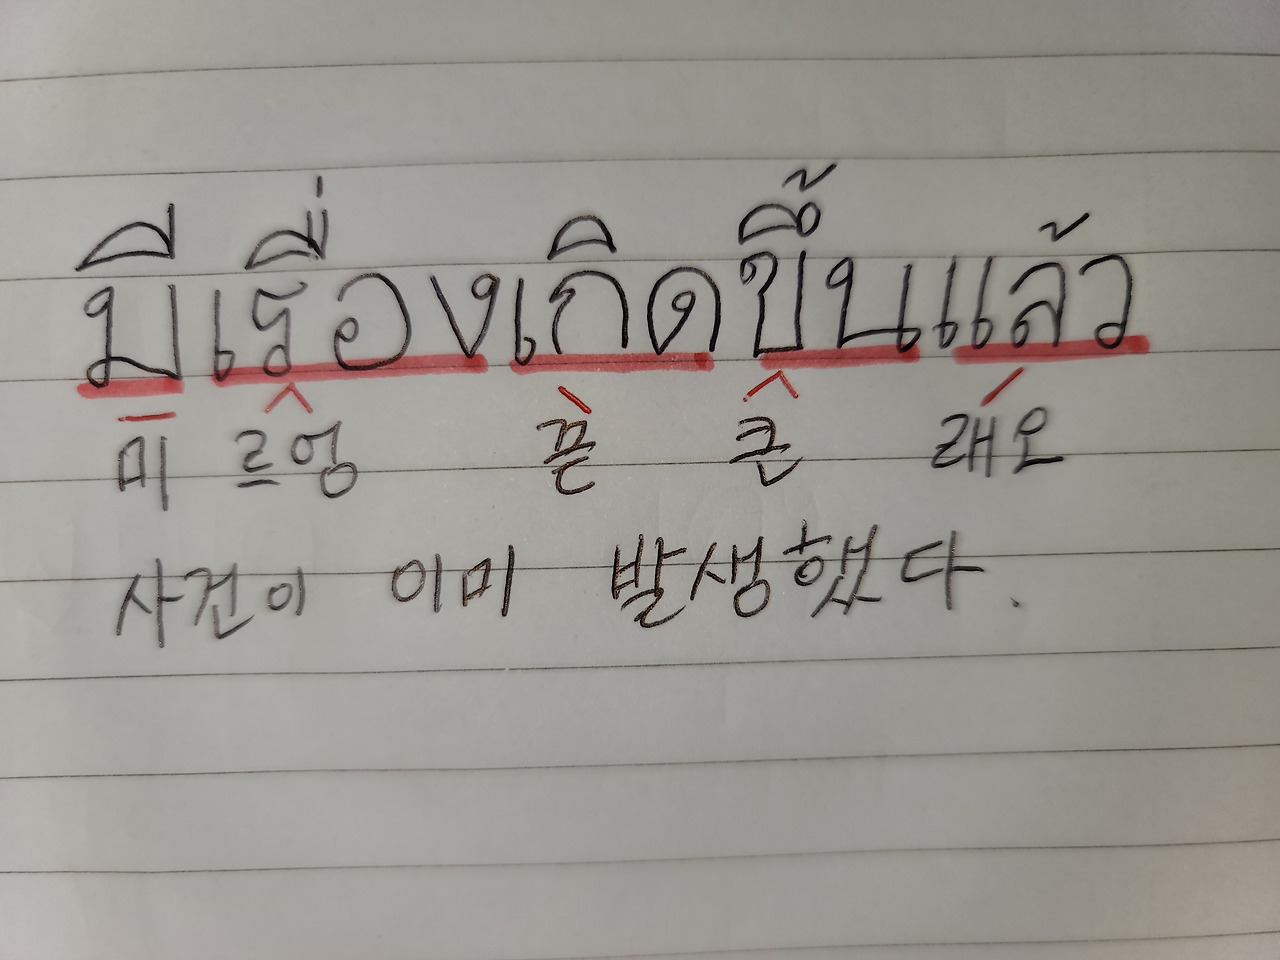 มีเรื่องเกิดขึ้นแล้ว
미 르엉 끋 큰 래오
사건이 이미 발생했다.